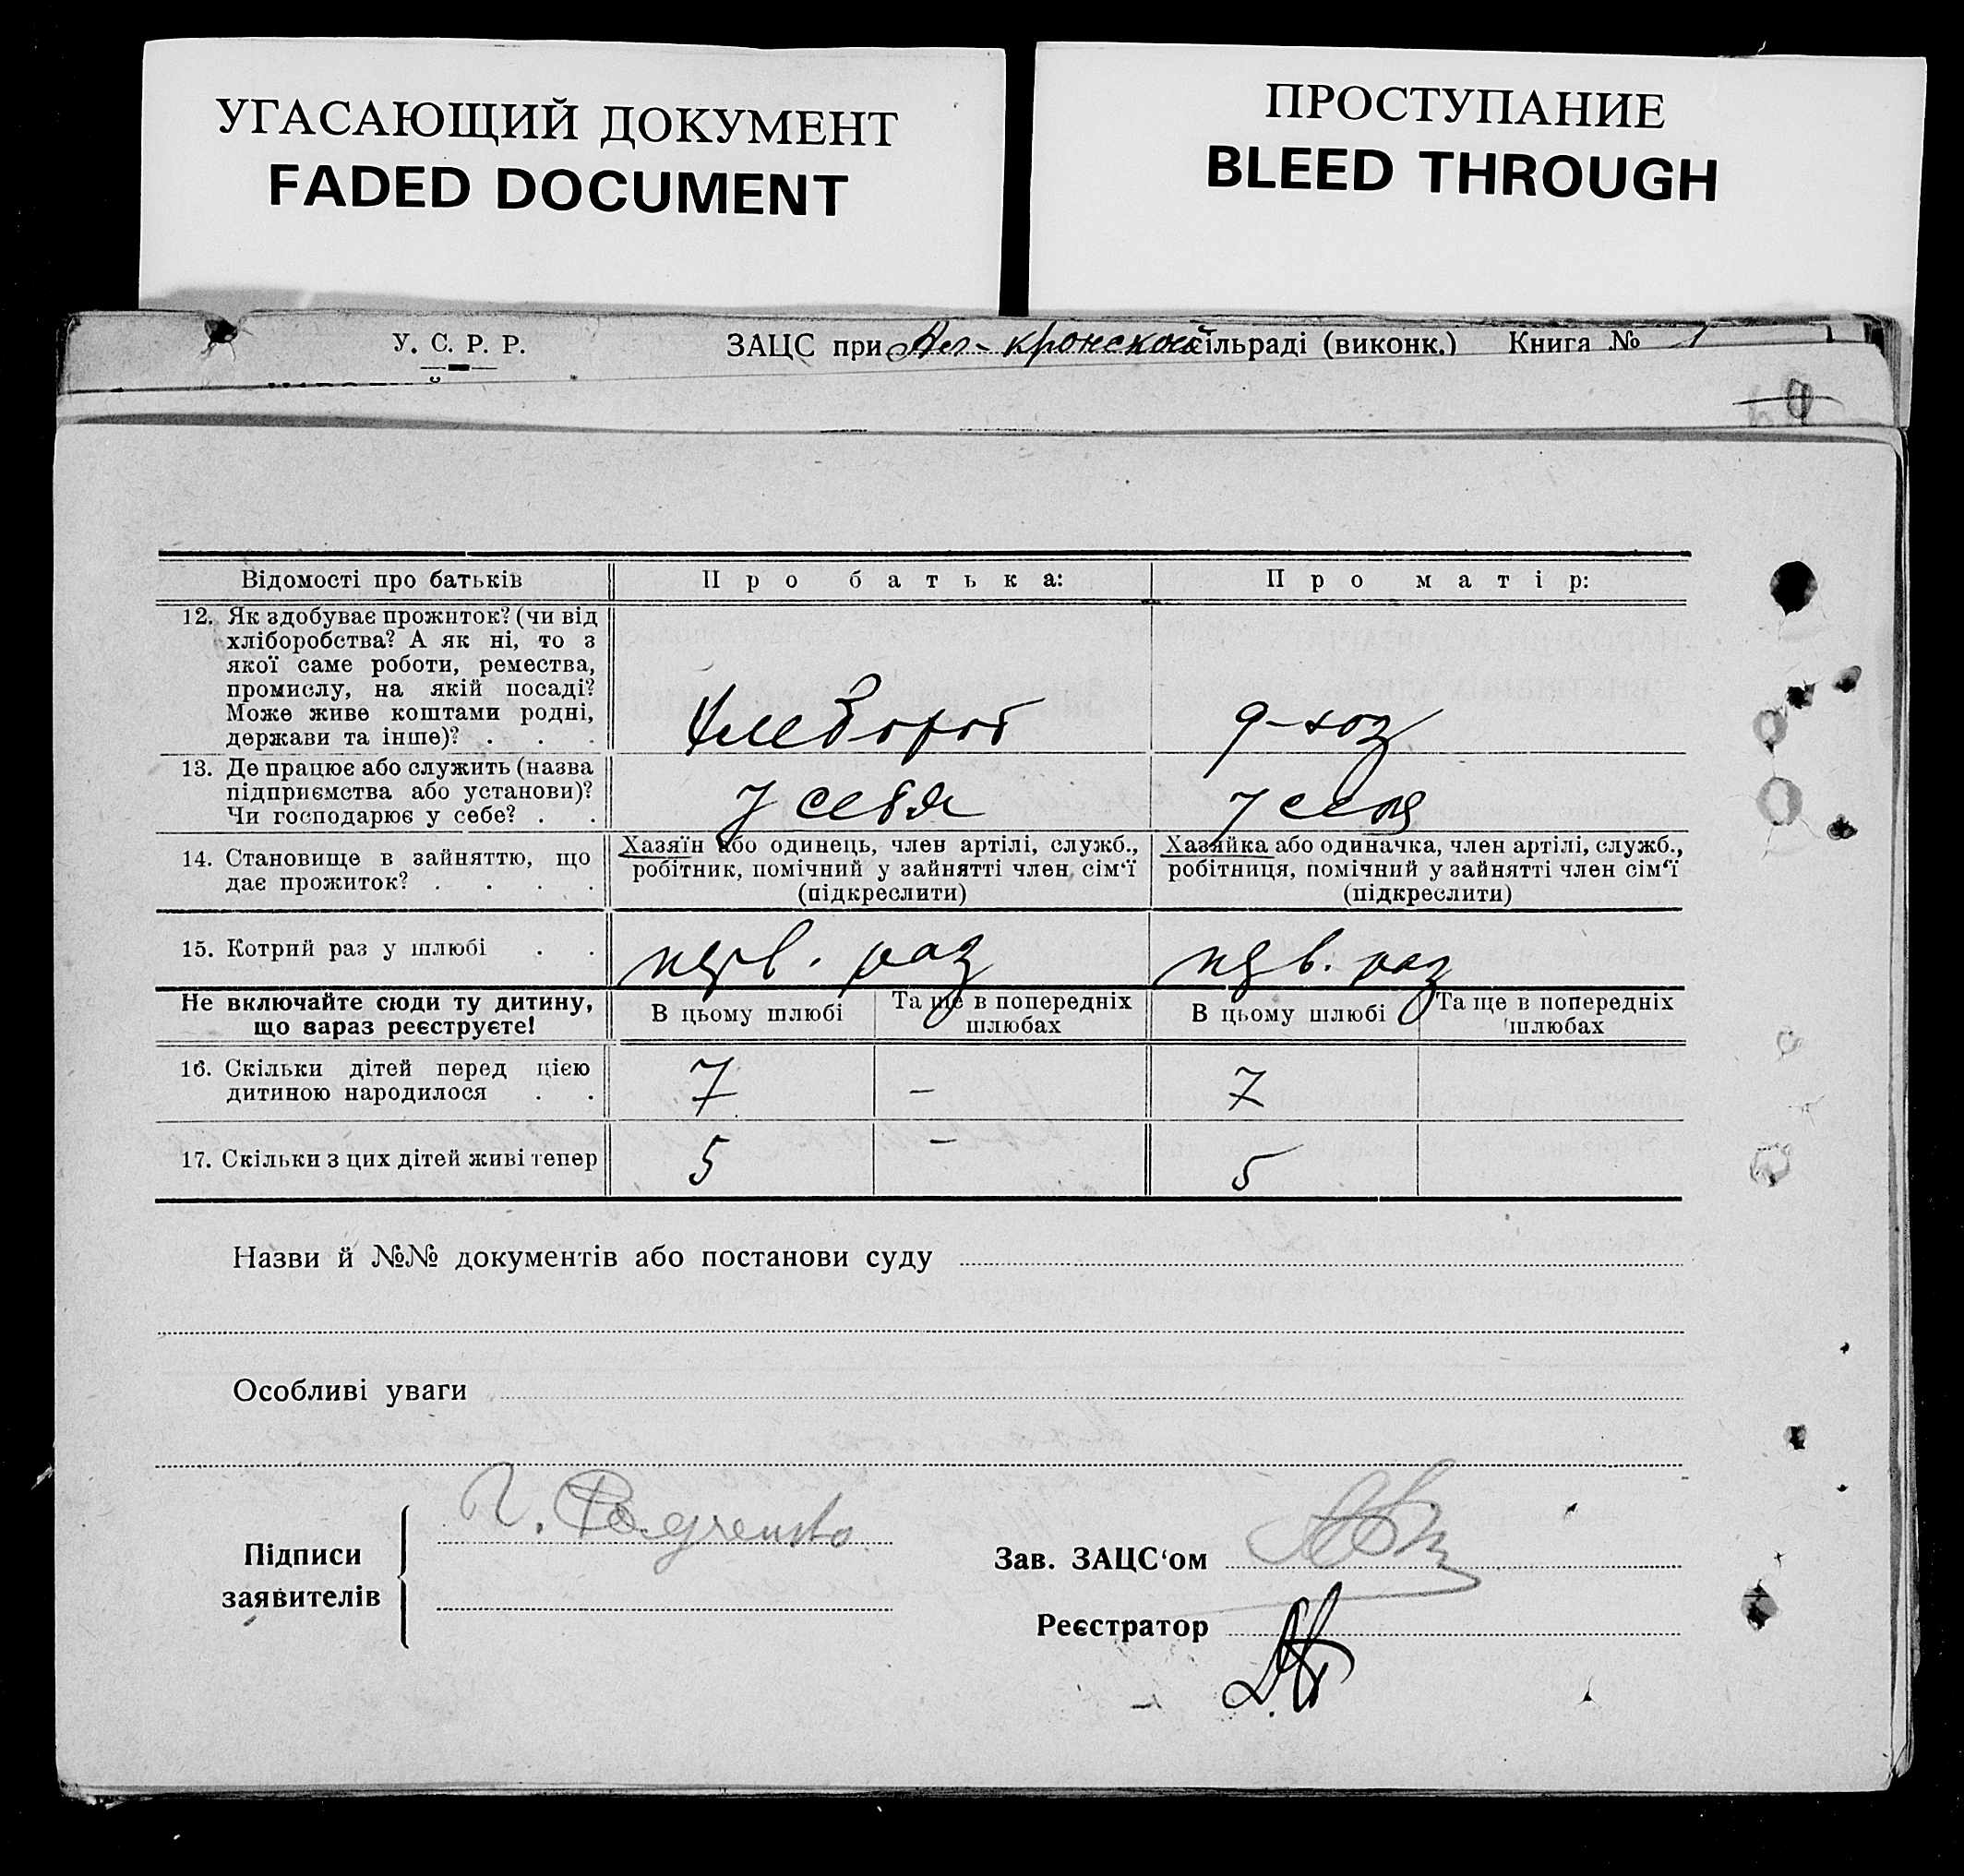 УГАСАЮЩИЙ ДОКУМЕНТ
FADED DOCUMENT
ПРОСТУПАНИЕ
BLEED THROUGH
У. С. Р. Р. ЗАЦС при сільраді (виконк.) Книга №
Відомості про батьків Про батька: Про матір:
12. Як здобуває прожиток? (чи від
хліборобства? А як ні, то з
якої саме роботи, ремества,
промислу, на якій посаді?
Може живе коштами родні,
держави та інше)? . . . Хлебороб д-хоз
13. Де працює або служить (назва
підприємства або установи)?
Чи господарює у себе? . . у себя у себя
14. Становище в зайняттю, що
дає прожиток? . . . .
Хазяїн або одинець, член артілі, служб.,
робітник, помічний у зайнятті член сім‘ї
(підкреслити)
Хазяйка або одиначка, член артілі, служб.,
робітниця, помічний у зайнятті член сім‘ї
(підкреслити)
15. Котрий раз у шлюбі . . перв. раз перв. раз
Не включайте сюди ту дитину,
що зараз реєструєте!
В цьому шлюбі Та ще в попередніх
шлюбах
В цьому шлюбі Та ще в попередніх
шлюбах
16. Скільки дітей перед цією
дитиною народилося . . 7 – 7
17. Скільки з цих дітей живі тепер 5 – 5
Назви й №№ документів або постанови суду
Особливі уваги
Підписи
заявителів
Зав. ЗАЦС‘ом
Реєстратор